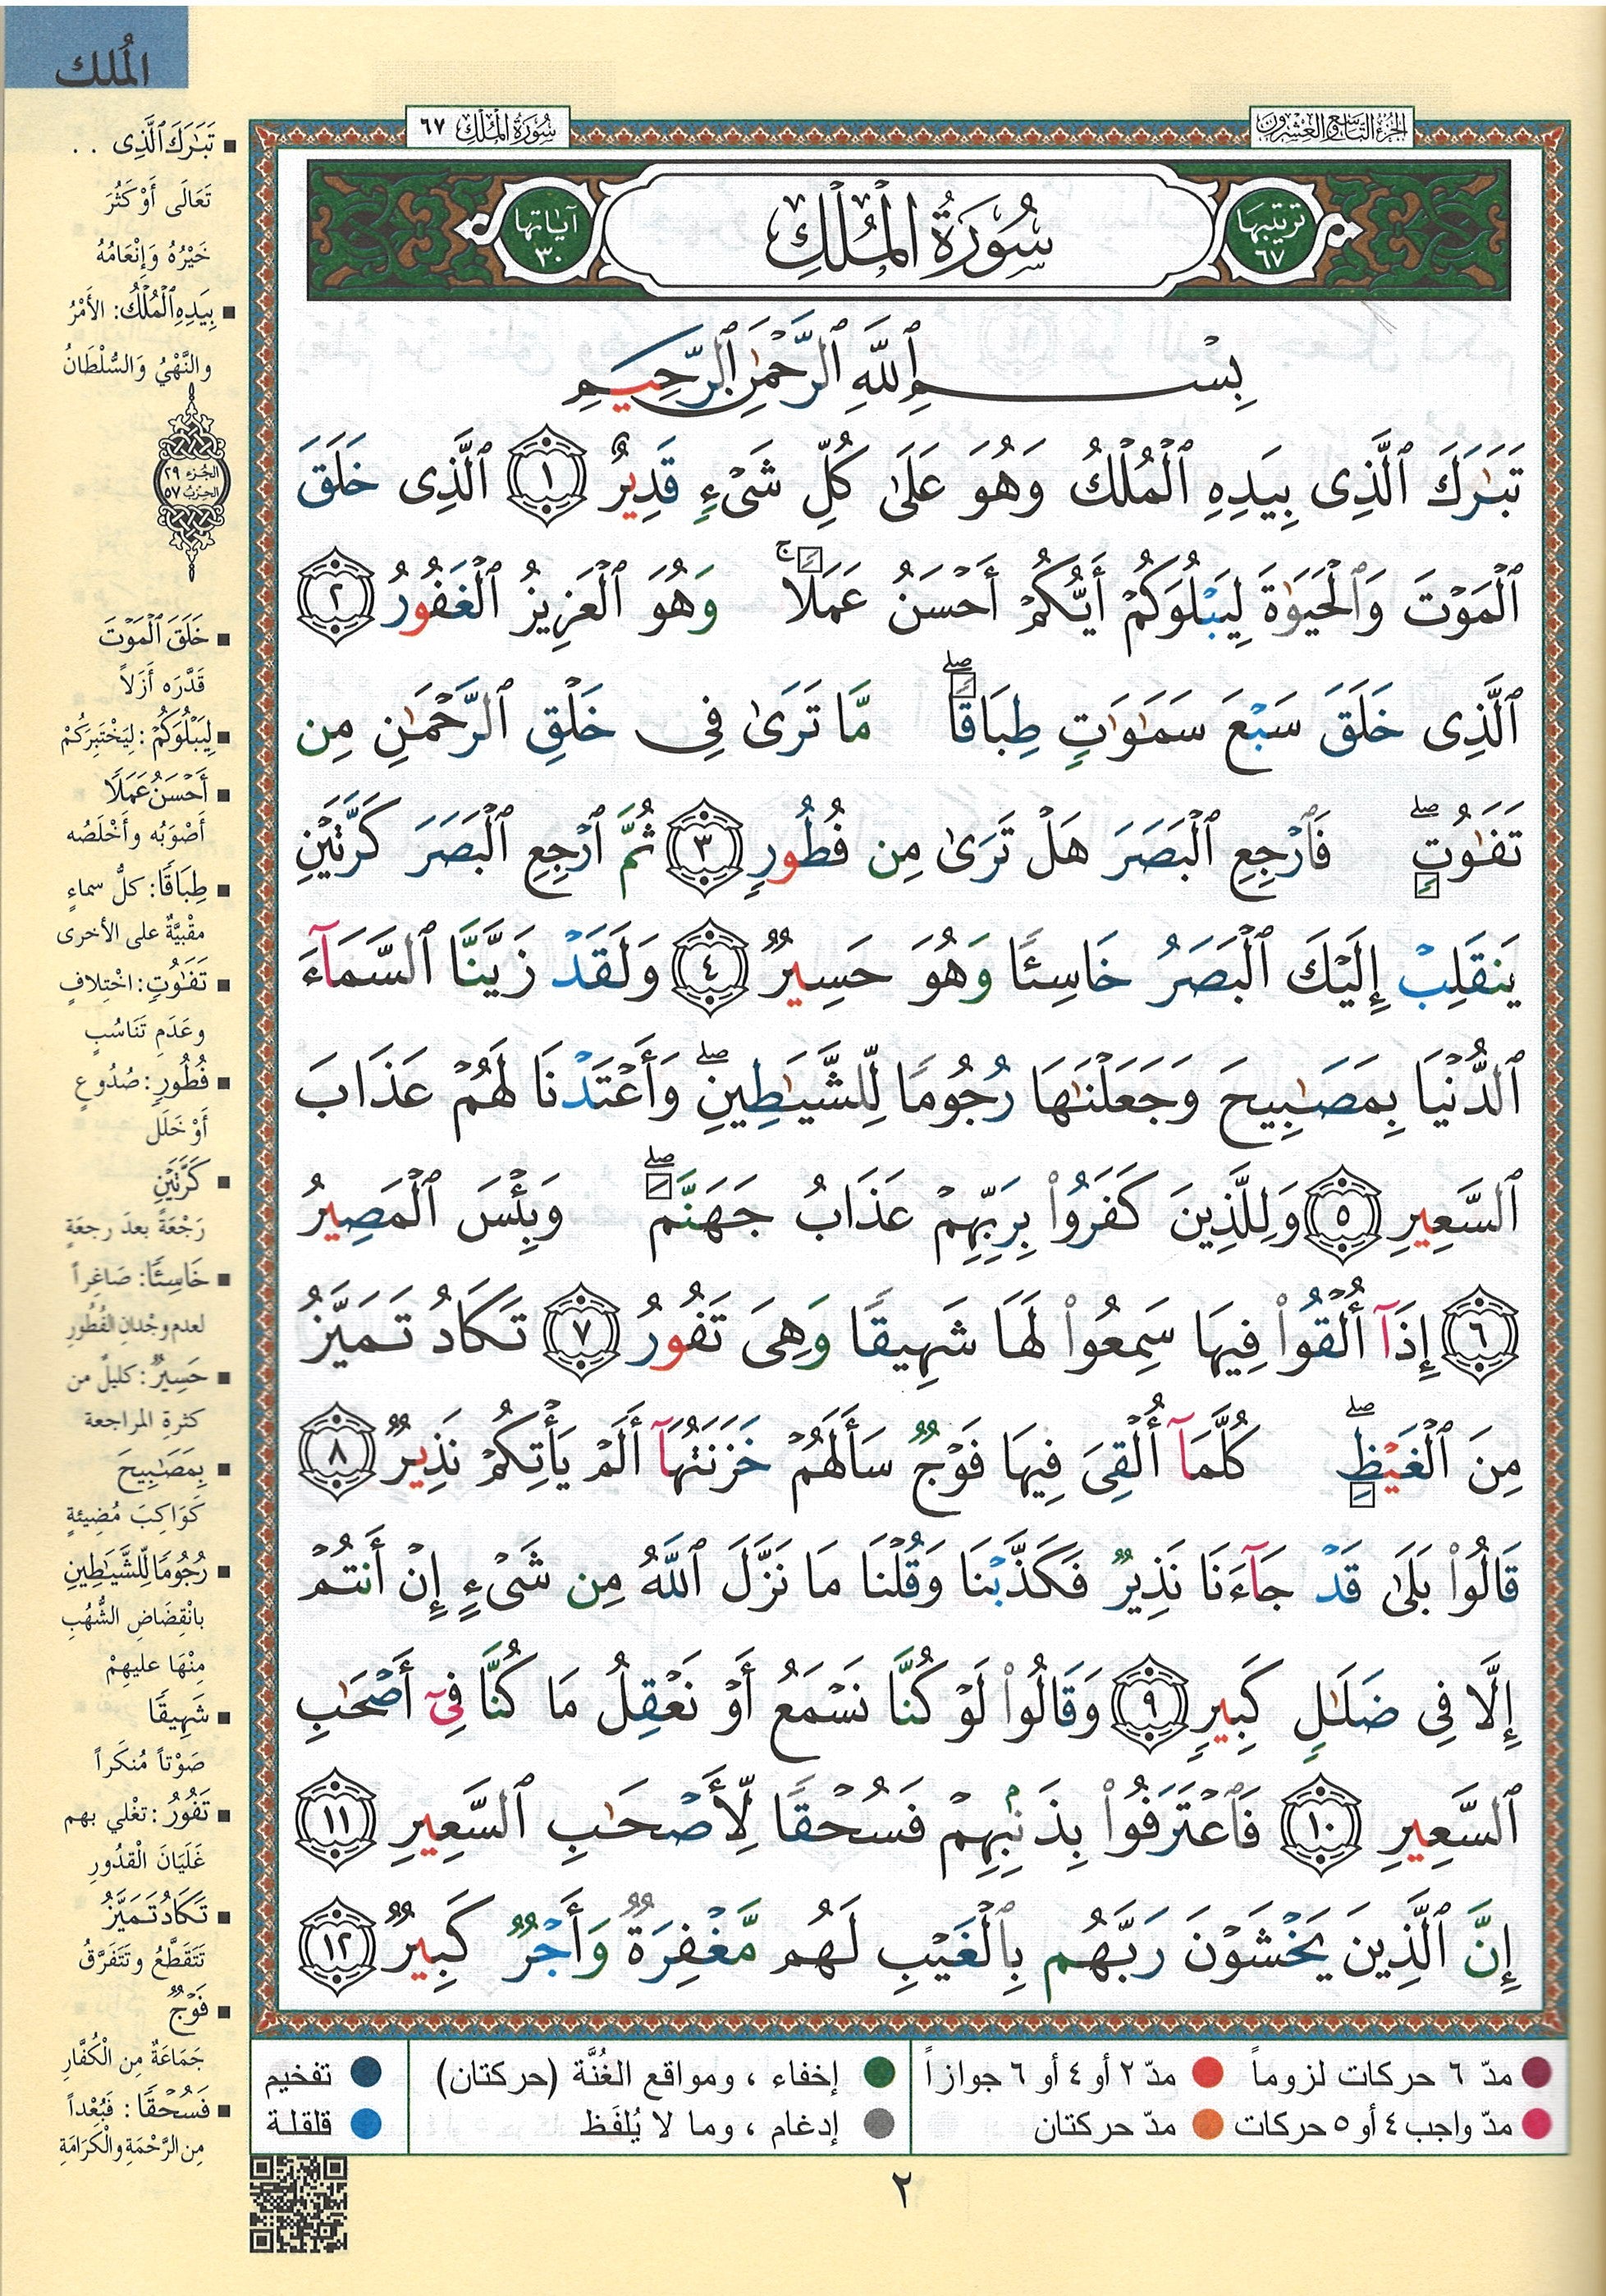 الملك
الجزء التاسع والعشرون
سُورَةُ الْمُلْكِ ٦٧
ترتيبها ٦٧
سُورَةُ الْمُلْكِ
آياتها ٣٠
بِسْمِ ٱللَّهِ ٱلرَّحْمَٰنِ ٱلرَّحِيمِ
تَبَٰرَكَ ٱلَّذِى بِيَدِهِ ٱلْمُلْكُ وَهُوَ عَلَىٰ كُلِّ شَىْءٍ قَدِيرٌ ١ ٱلَّذِى خَلَقَ
ٱلْمَوْتَ وَٱلْحَيَوٰةَ لِيَبْلُوَكُمْ أَيُّكُمْ أَحْسَنُ عَمَلًا ۚ وَهُوَ ٱلْعَزِيزُ ٱلْغَفُورُ ٢
ٱلَّذِى خَلَقَ سَبْعَ سَمَٰوَٰتٍ طِبَاقًا ۖ مَّا تَرَىٰ فِى خَلْقِ ٱلرَّحْمَٰنِ مِن
تَفَٰوُتٍ ۖ فَٱرْجِعِ ٱلْبَصَرَ هَلْ تَرَىٰ مِن فُطُورٍ ٣ ثُمَّ ٱرْجِعِ ٱلْبَصَرَ كَرَّتَيْنِ
يَنقَلِبْ إِلَيْكَ ٱلْبَصَرُ خَاسِئًا وَهُوَ حَسِيرٌ ٤ وَلَقَدْ زَيَّنَّا ٱلسَّمَآءَ
ٱلدُّنْيَا بِمَصَٰبِيحَ وَجَعَلْنَٰهَا رُجُومًا لِّلشَّيَٰطِينِ ۖ وَأَعْتَدْنَا لَهُمْ عَذَابَ
ٱلسَّعِيرِ ٥ وَلِلَّذِينَ كَفَرُوا۟ بِرَبِّهِمْ عَذَابُ جَهَنَّمَ ۖ وَبِئْسَ ٱلْمَصِيرُ
٦ إِذَآ أُلْقُوا۟ فِيهَا سَمِعُوا۟ لَهَا شَهِيقًا وَهِىَ تَفُورُ ٧ تَكَادُ تَمَيَّزُ
مِنَ ٱلْغَيْظِ ۖ كُلَّمَآ أُلْقِىَ فِيهَا فَوْجٌ سَأَلَهُمْ خَزَنَتُهَآ أَلَمْ يَأْتِكُمْ نَذِيرٌ ٨
قَالُوا۟ بَلَىٰ قَدْ جَآءَنَا نَذِيرٌ فَكَذَّبْنَا وَقُلْنَا مَا نَزَّلَ ٱللَّهُ مِن شَىْءٍ إِنْ أَنتُمْ
إِلَّا فِى ضَلَٰلٍ كَبِيرٍ ٩ وَقَالُوا۟ لَوْ كُنَّا نَسْمَعُ أَوْ نَعْقِلُ مَا كُنَّا فِىٓ أَصْحَٰبِ
ٱلسَّعِيرِ ١٠ فَٱعْتَرَفُوا۟ بِذَنۢبِهِمْ فَسُحْقًا لِّأَصْحَٰبِ ٱلسَّعِيرِ ١١
إِنَّ ٱلَّذِينَ يَخْشَوْنَ رَبَّهُم بِٱلْغَيْبِ لَهُم مَّغْفِرَةٌ وَأَجْرٌ كَبِيرٌ ١٢
تَبَٰرَكَ ٱلَّذِى . .
تَعَالَى أَوْ كَثُرَ
خَيْرُهُ وَإِنْعَامُهُ
بِيَدِهِ ٱلْمُلْكُ: الأَمْرُ
والنَّهْيُ وَالسُّلْطَانُ
الجزء ٢٩
الحزب ٥٧
خَلَقَ ٱلْمَوْتَ
قَدَّرَه أَزَلاً
لِيَبْلُوَكُمْ: لِيَخْتَبِرَكُمْ
أَحْسَنُ عَمَلًا
أَصْوَبُه وأَخْلَصُه
طِبَاقًا: كلُّ سماءٍ
مقْبيَّةٌ على الأخرى
تَفَٰوُتٍ: اخْتِلافٍ
وعَدَمِ تَنَاسُبٍ
فُطُورٍ: صُدُوعٍ
أَوْ خَلَل
كَرَّتَيْنِ
رَجْعَةً بعدَ رجعةٍ
خَاسِئًا: صَاغِراً
لعدم وجْدانِ الفُطُورِ
حَسِيرٌ: كليلٌ من
كثرةِ المراجعة
بِمَصَٰبِيحَ
كَوَاكِبَ مُضِيئةٍ
رُجُومًا لِّلشَّيَٰطِينِ
بانْقِضَاضِ الشُّهُبِ
مِنْهَا عليهِمْ
شَهِيقًا
صَوْتاً مُنكَراً
تَفُورُ: تغْلي بهم
غَلَيَانَ الْقدُورِ
تَكَادُ تَمَيَّزُ
تَتَقَطَّعُ وتَتَفَرَّقُ
فَوْجٌ
جَمَاعَةٌ مِن الْكُفَّارِ
فَسُحْقًا: فَبُعْداً
مِن الرَّحْمَةِ والْكَرَامَةِ
مدّ ٦ حركات لزوماً
مدّ ٢ أو ٤ أو ٦ جوازاً
مدّ واجب ٤ أو ٥ حركات
مدّ حركتان
إخفاء ، ومواقع الغُنَّة (حركتان)
إدغام ، وما لا يُلفَظ
تفخيم
قلقلة
٢